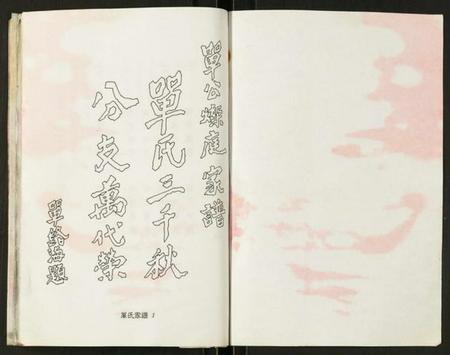 單公燦庭家譜
單氏三千秋
分支萬代榮
單銘題
單氏家譜 1